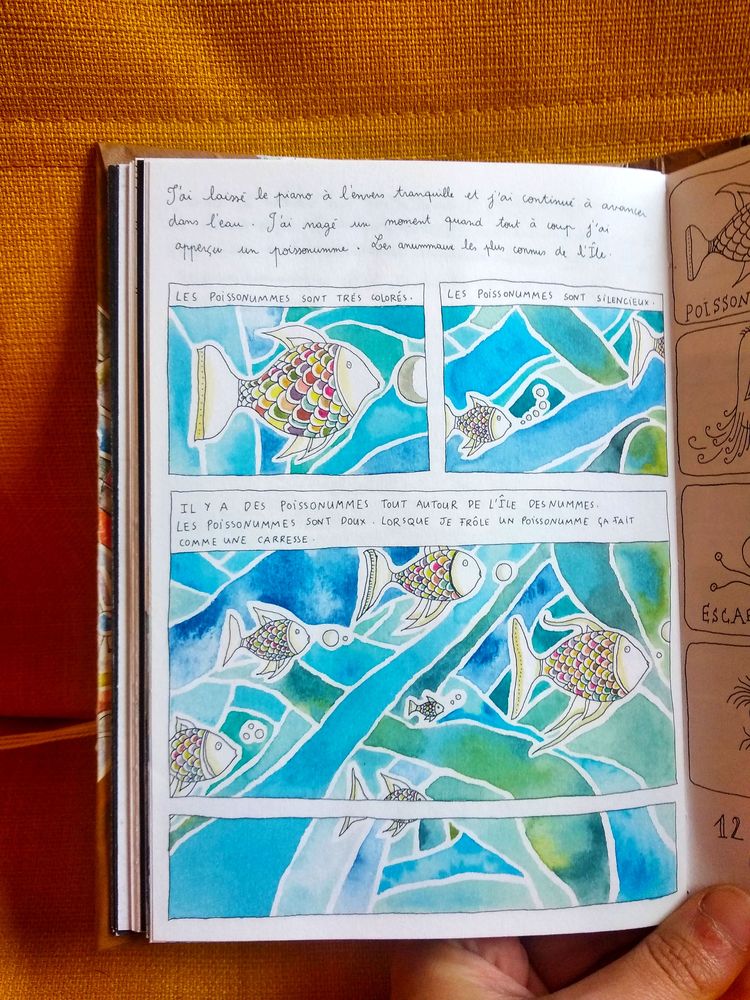 J'ai laissé le piano à l'envers tranquille et j'ai continué à avancer
dans l'eau. J'ai nagé un moment quand tout à coup j'ai
apperçu un poissonumme. Les anummaux les plus connus de l'Île.
LES POISSONUMMES SONT TRÉS COLORÉS.
LES POISSONUMMES SONT SILENCIEUX.
IL Y A DES POISSONUMMES TOUT AUTOUR DE L'ÎLE DESNUMMES.
LES POISSONUMMES SONT DOUX. LORSQUE JE FRÔLE UN POISSONUMME ÇA FAIT
COMME UNE CARRESSE.
POISSON
ESCAR
12